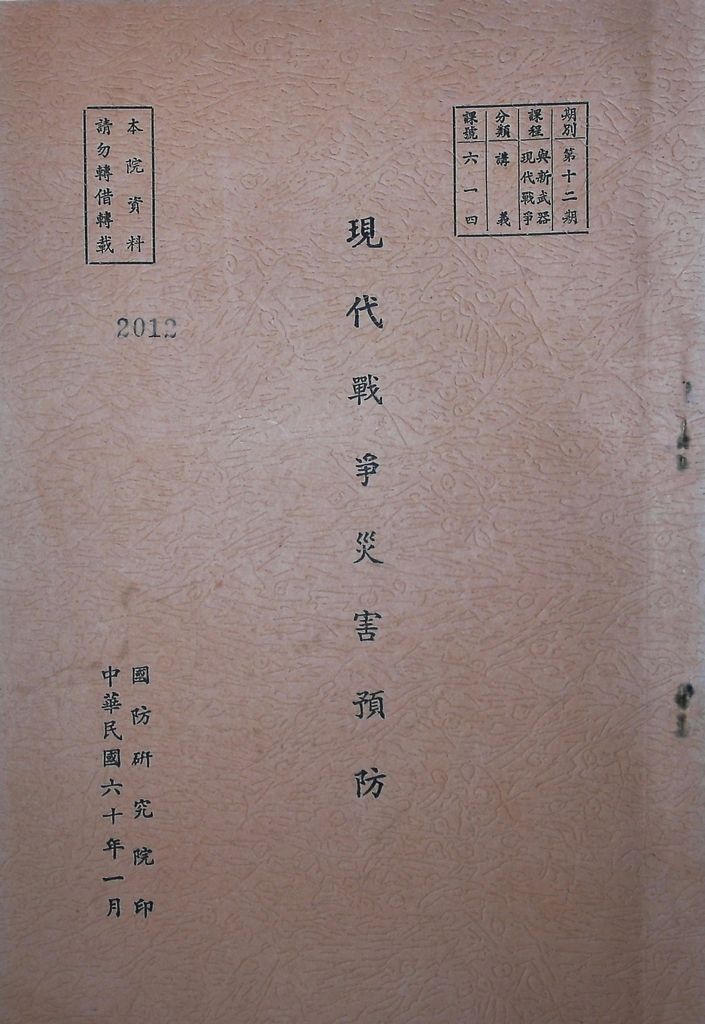 期別 第十二期
課程 現代戰爭與新武器
分類 講義
課號 六一四
現代戰爭災害預防
本院資料
請勿轉借轉載
2012
國防研究院印
中華民國六十年一月